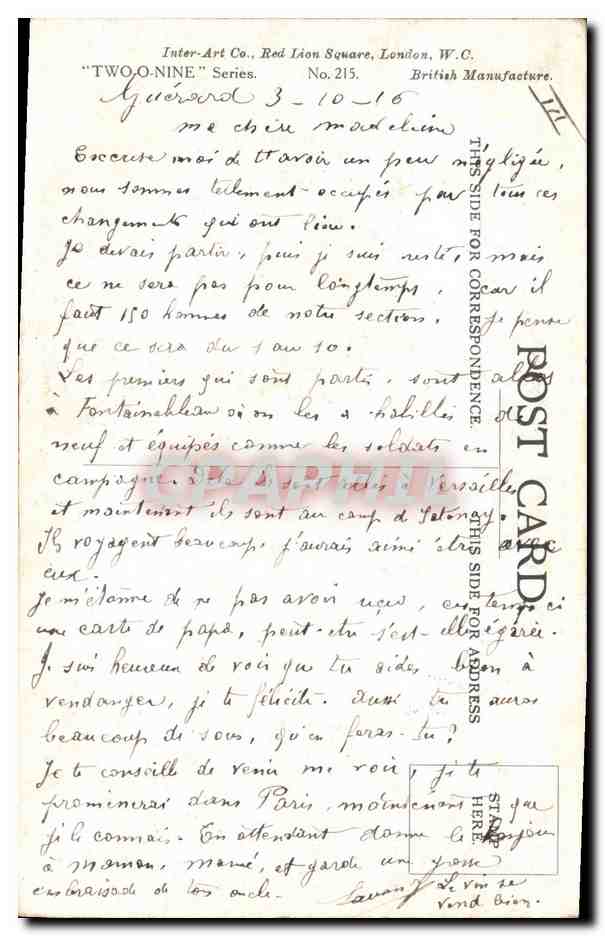 Inter-Art Co., Red Lion Square, London, W.C.
"TWO-O-NINE" Series. No. 215. British Manufacture.
Guérard 3-10-16
ma chère madeleine
Excuse moi de t'avoir un peu négligée,
nous sommes tellement occupés par tous ces
changements qui ont lieu.
Je devais partir, puis je suis resté, mais
ce ne sera pas pour longtemps, car il
faut 150 hommes de notre section. Je pense
que ce sera du 5 au 10.
Les premiers qui sont partis, sont allés
à Fontainebleau où on les a habillés de
neuf et équipés comme les soldats en
campagne. De là ils sont à Versailles
et maintenant ils sont au camp de
Ils voyagent beaucoup, j'aurais aimé être avec
eux.
Je m'étonne de ne pas avoir reçu, ces temps ci
une carte de papa, peut-être s'est-elle égarée.
Je suis heureux de voir que tu aides bien à
vendanger, je te félicite. Aussi tu auras
beaucoup de sous, qu'en feras-tu?
Je te conseille de venir me voir, je te
promènerai dans Paris, maintenant que
je le connais. En attendant donne le bonjour
à maman, mémé, et garde une grosse
embrassade de ton oncle.
Le vin se
vend bien.
THIS SIDE FOR CORRESPONDENCE.
POST CARD
THIS SIDE FOR ADDRESS
STAMP
HERE.
CPAPHIL